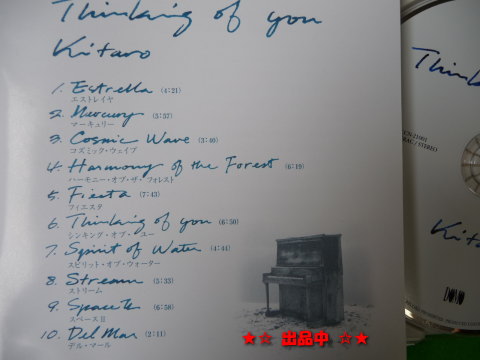 Thinking of you
Kitaro
1. Estrella (4:21)
エストレイヤ
2. Mercury (5:57)
マーキュリー
3. Cosmic Wave (3:40)
コズミック・ウェイブ
4. Harmony of the Forest (6:19)
ハーモニー・オブ・ザ・フォレスト
5. Fiesta (7:43)
フィエスタ
6. Thinking of you (6:50)
シンキング・オブ・ユー
7. Spirit of Water (4:44)
スピリット・オブ・ウォーター
8. Stream (5:33)
ストリーム
9. Space II (6:58)
スペース II
10. Del Mar (2:11)
デル・マール
Thin
Kita
/ STEREO
DOMO
★☆ 出品中 ☆★